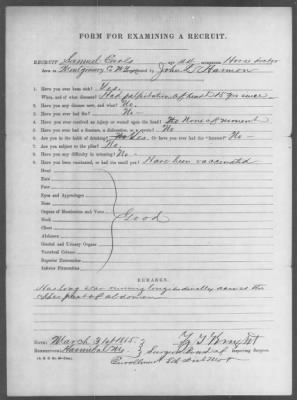 FORM FOR EXAMINING A RECRUIT.
RECRUIT Samuel age 44 occupation Horse doctor
born in Montgomery Co enlisted by John L Harmon
1. Have you ever been sick? Yes.
When, and of what disease? Had palpitation of heart 15 yrs since
2. Have you any disease now, and what? No.
3. Have you ever had fits? No
4. Have you ever received an injury or wound upon the head? No None of moment
5. Have you ever had a fracture, a dislocation, or a sprain? No
6. Are you in the habit of drinking? Yes. Or have you ever had the "horrors"? No
7. Are you subject to the piles? No.
8. Have you any difficulty in urinating? No
9. Have you been vaccinated, or had the small pox? Have been vaccinated
Head
Ears
Face
Eyes and Appendages
Nose
Mouth
Organs of Mastication and Voice
Neck
Chest
Abdomen
Genital and Urinary Organs
Vertebral Column
Superior Extremities
Inferior Extremities
Good
REMARKS.
Has long scar running longitudinally across the
upper part of abdomen
DATE: March 31st 1865.
RENDEZVOUS: Hannibal Mo.
Surgeon Board of Inspecting Surgeon.
Enrollment